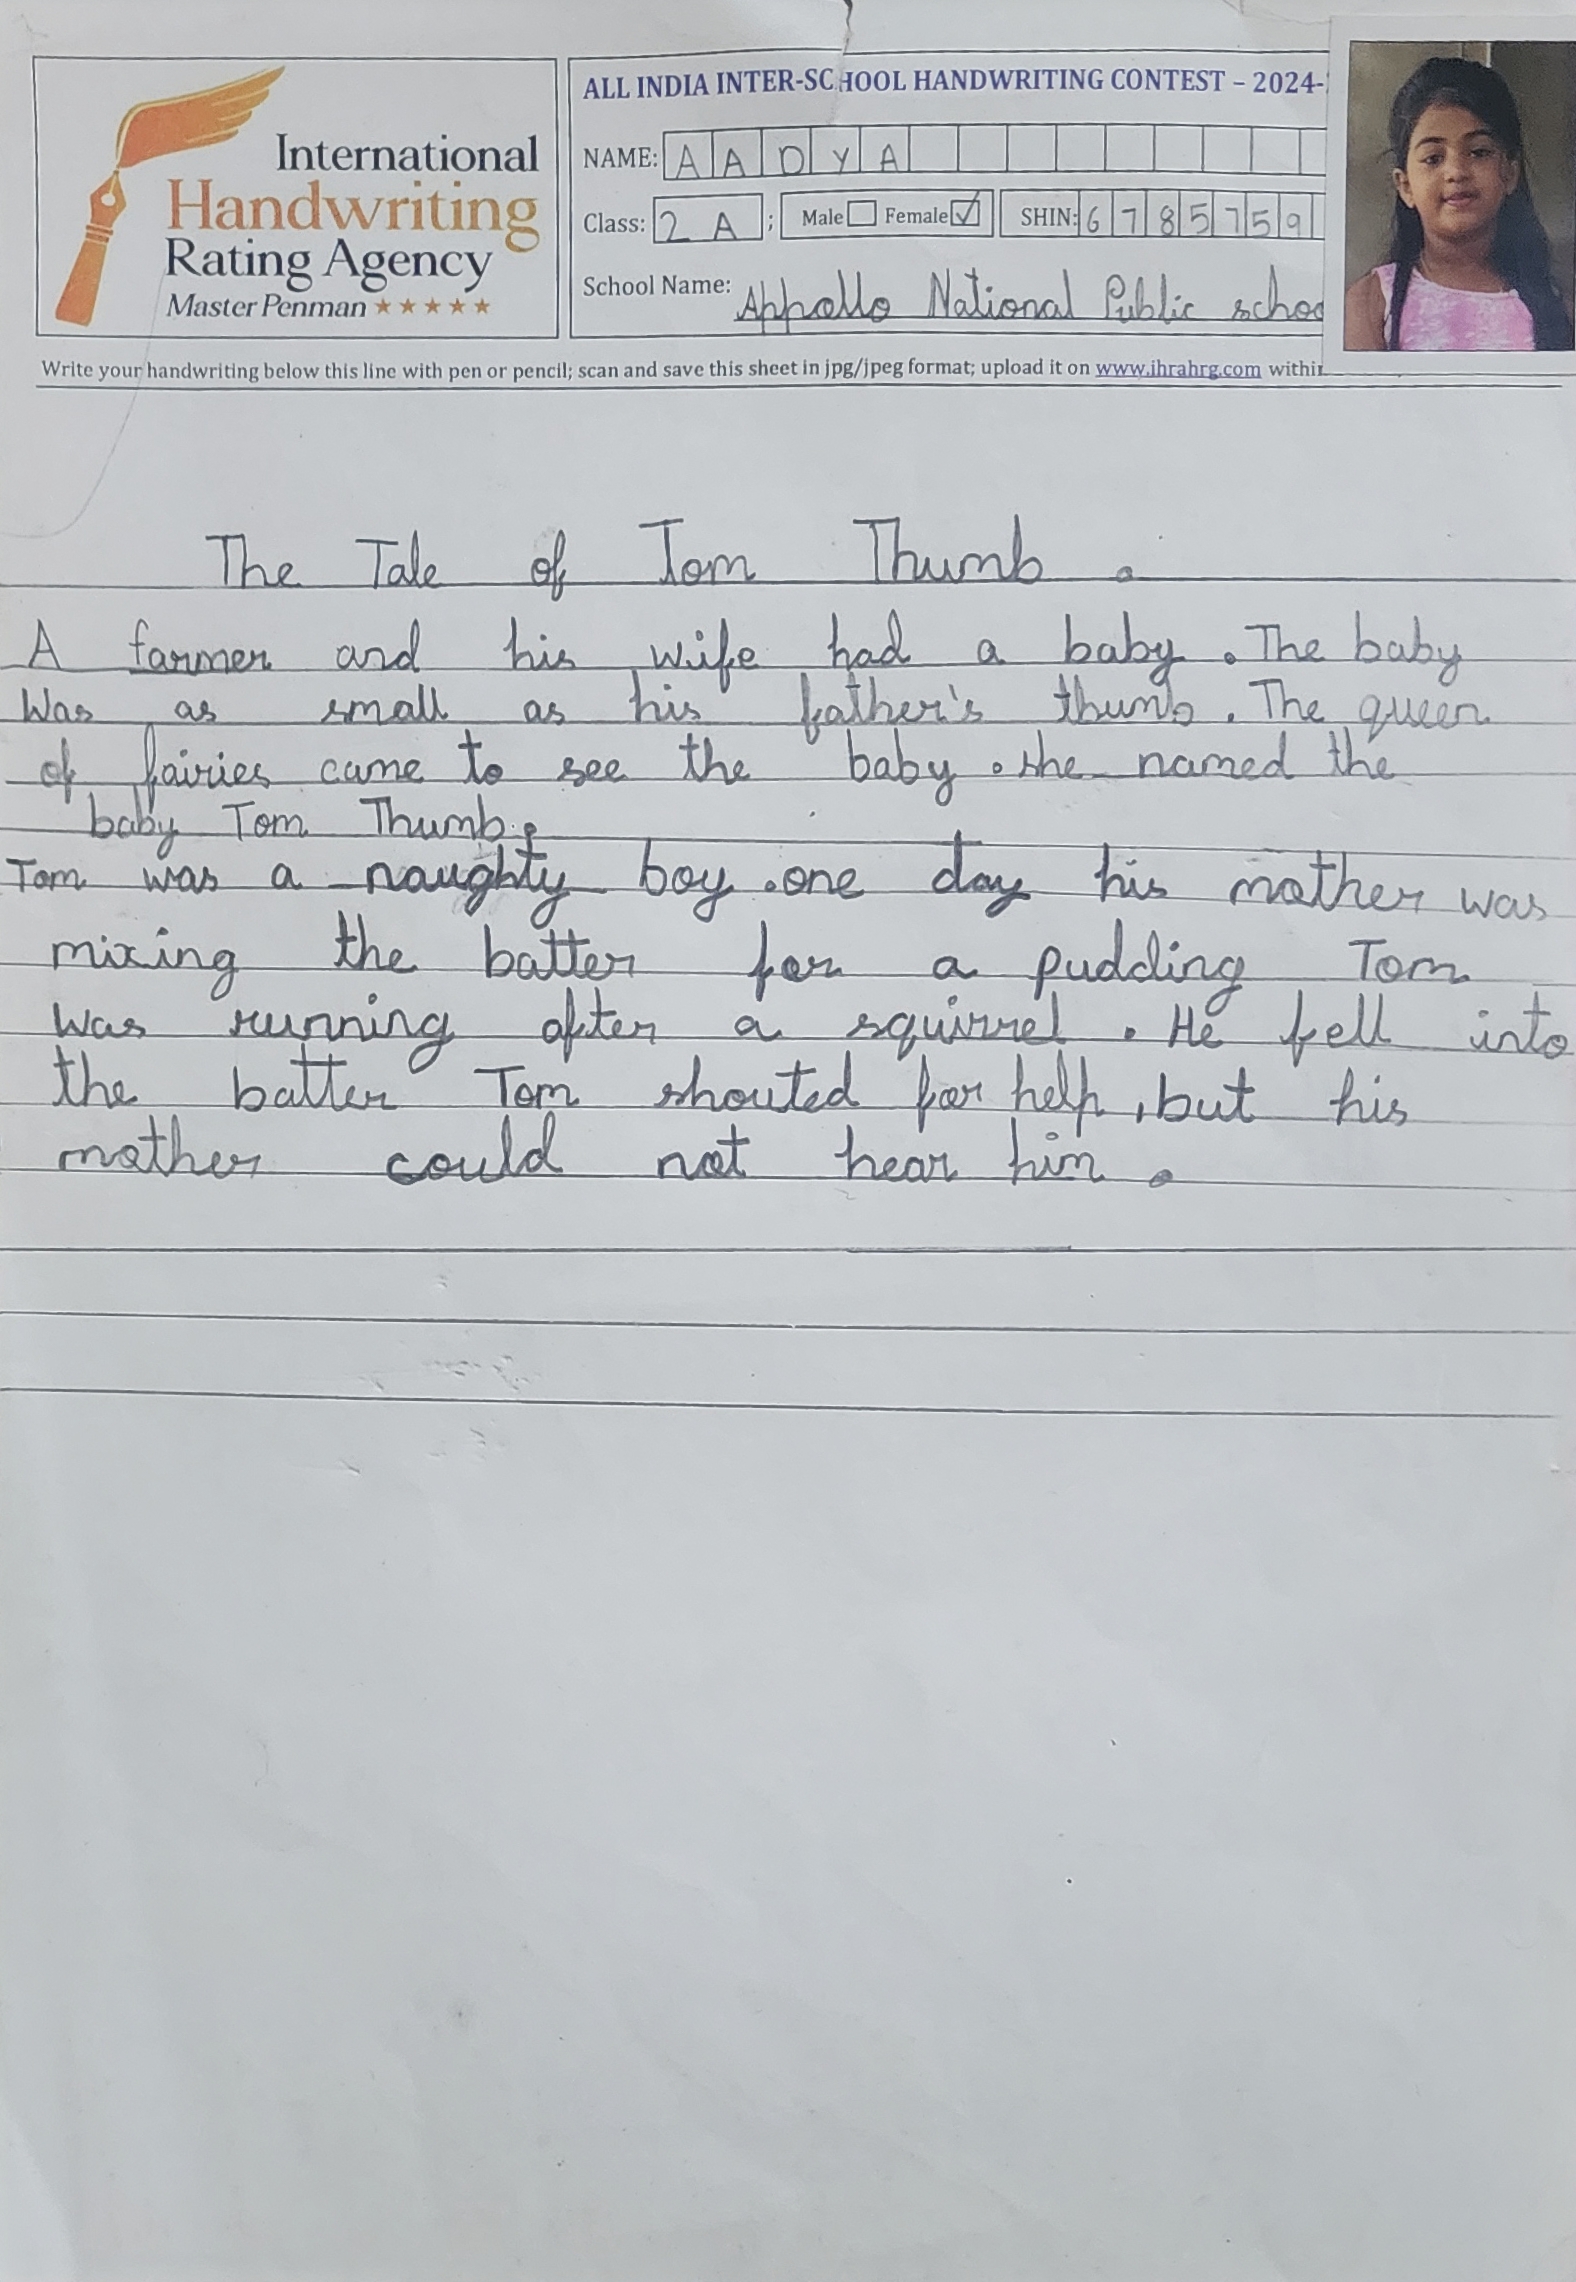 International
Handwriting
Rating Agency
Master Penman ★★★★★
ALL INDIA INTER-SCHOOL HANDWRITING CONTEST – 2024-
NAME: AADYA
Class: 2 A ; Male Female ✓ SHIN: 6785759
School Name: Appollo National Public schoo
Write your handwriting below this line with pen or pencil; scan and save this sheet in jpg/jpeg format; upload it on www.ihrahrg.com within
The Tale of Tom Thumb .
A farmer and his wife had a baby . The baby
Was as small as his father's thumb . The queen
of fairies came to see the baby . she named the
baby Tom Thumb .
Tom was a naughty boy . one day his mother was
mixing the batter for a pudding Tom
was running after a squirrel . He fell into
the batter Tom shouted for help , but his
mother could not hear him .